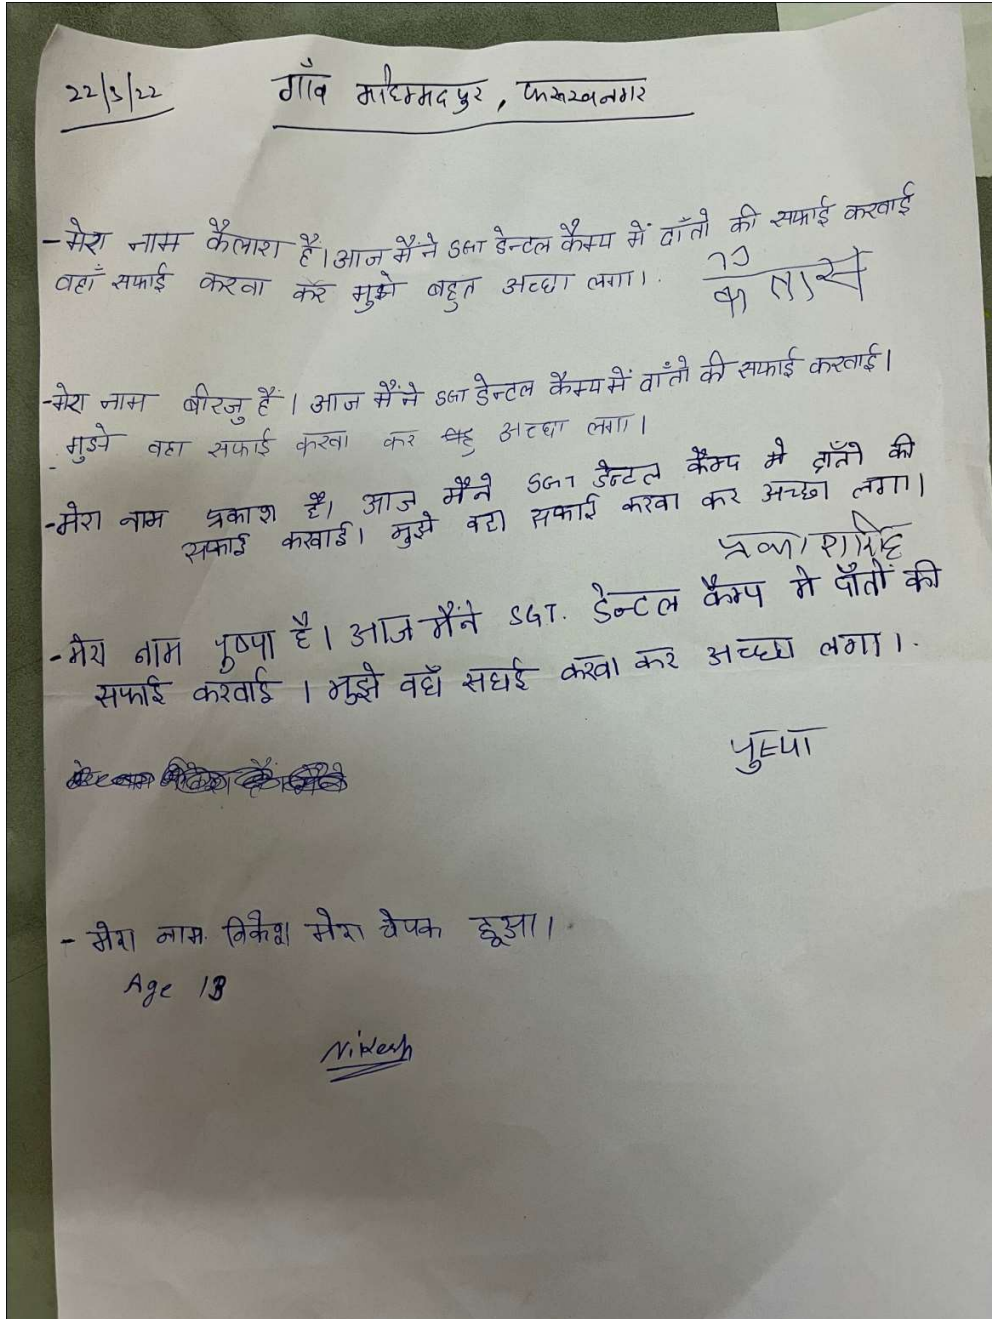 22/3/22 गाँव मोहम्मदपुर, फारूखनगर
- मेरा नाम कैलाश है। आज मैंने SGT डेन्टल कैम्प में दाँतो की सफाई करवाई
वहाँ सफाई करवा कर मुझे बहुत अच्छा लगा।
- मेरा नाम बीरजु है। आज मैंने SGT डेन्टल कैम्प में दाँतो की सफाई करवाई।
मुझे वहा सफाई करवा कर अच्छा लगा।
- मेरा नाम प्रकाश है। आज मैंने SGT डेन्टल कैम्प मे दाँतो की
सफाई करवाई। मुझे वहा सफाई करवा कर अच्छा लगा।
- मेरा नाम पुष्पा है। आज मैंने SGT. डेन्टल कैम्प मे दाँतों की
सफाई करवाई। मुझे वहाँ करवा कर अच्छा लगा।
पुष्पा
- मेरा नाम निकेश मेरा चेपक हूआ।
Age 13
Nikesh